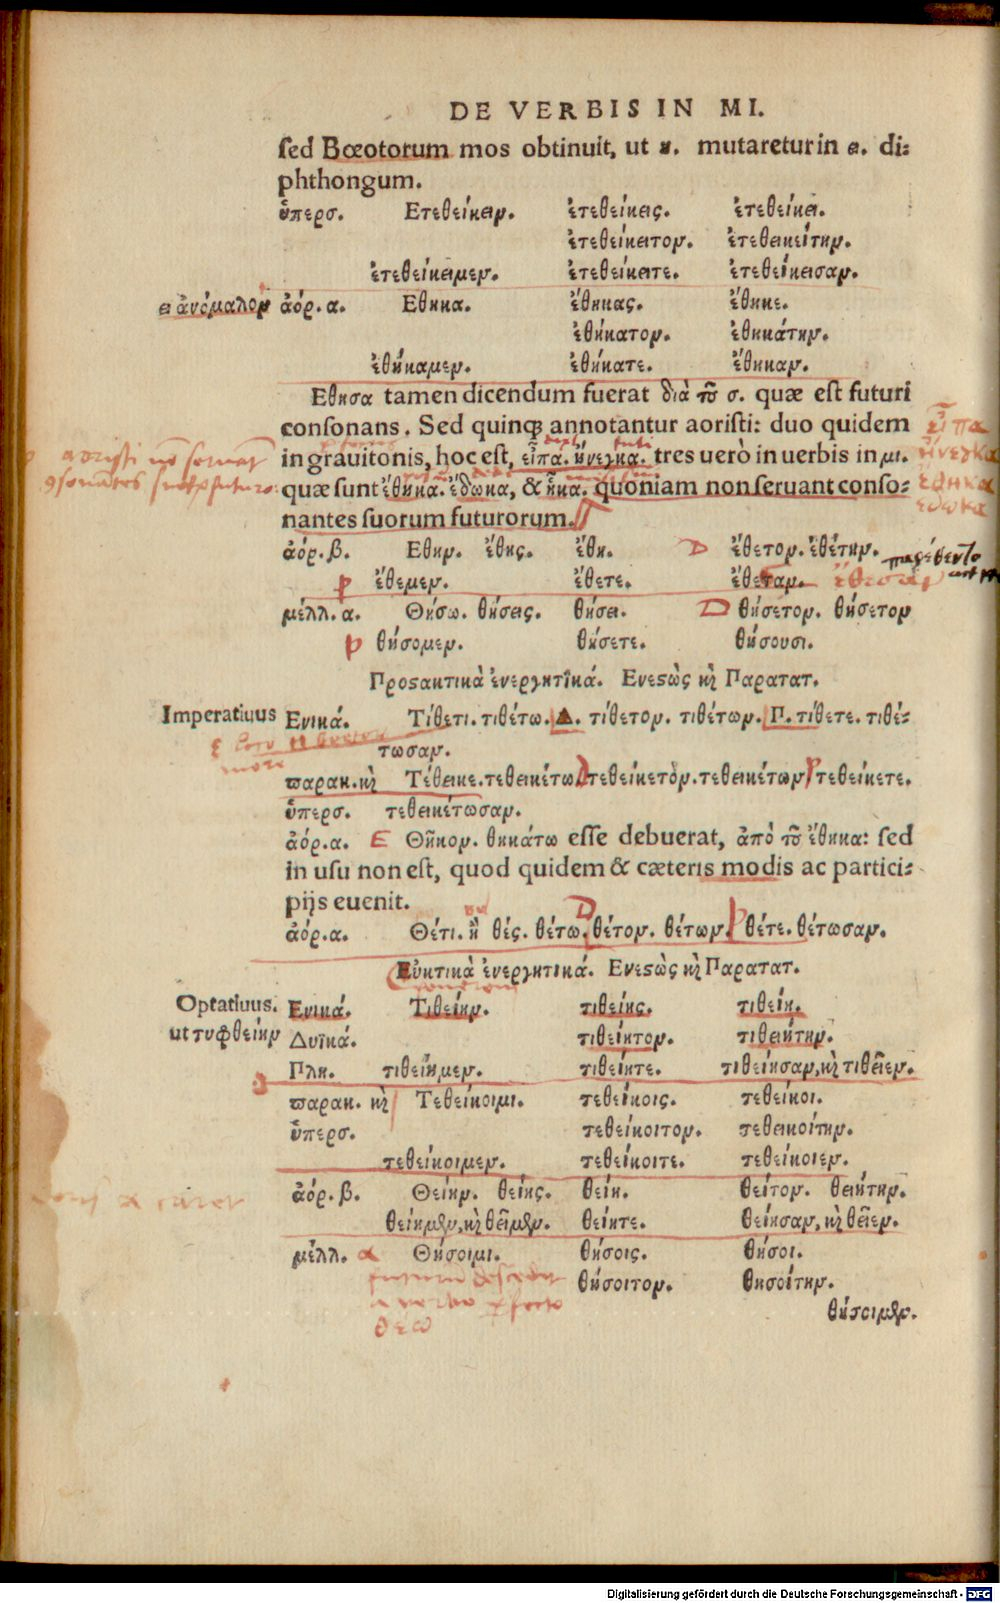 DE VERBIS IN MI.
sed Bœotorum mos obtinuit, ut η. mutaretur in ει. di-
phthongum.
ὑπερσ. Ετεθείκειν. ἐτεθείκεις. ἐτεθείκει.
ἐτεθείκειτον. ἐτεθεικείτην.
ἐτεθείκειμεν. ἐτεθείκειτε. ἐτεθείκεισαν.
ει ἀνόμαλον ἀόρ. α. Εθηκα. ἔθηκας. ἔθηκε.
ἐθήκατον. ἐθηκάτην.
ἐθήκαμεν. ἐθήκατε. ἔθηκαν.
Εθησα tamen dicendum fuerat διὰ τοῦ σ. quæ est futuri
consonans. Sed quinq; annotantur aoristi: duo quidem
in grauitonis, hoc est, εἶπα. ἤνεγκα. tres uerò in uerbis in μι.
quæ sunt ἔθηκα. ἔδωκα, & ἧκα. quoniam non seruant conso-
nantes suorum futurorum.
aoristi nō seruāt
εἶπα
ἤνεγκα
ἔθηκα
ἔδωκα
ἀόρ. β. Εθην. ἔθης. ἔθη. D ἔθετον. ἐθέτην.
P ἔθεμεν. ἔθετε. ἔθεσαν. ἔθεσαν
μέλλ. α. Θήσω. θήσεις. θήσει. D θήσετον. θήσετον
P θήσομεν. θήσετε. θήσουσι.
Προστακτικὰ ἐνεργητικά. Ενεστὼς καὶ Παρατατ.
Imperatiuus Ενικά. Τίθετι. τιθέτω. Δ. τίθετον. τιθέτων. Π. τίθετε. τιθέ-
τωσαν.
παρακ. καὶ Τέθεικε. τεθεικέτω D τεθείκετον. τεθεικέτων P τεθείκετε.
ὑπερσ. τεθεικέτωσαν.
ἀόρ. α. E Θῆκον. θηκάτω esse debuerat, ἀπὸ τοῦ ἔθηκα: sed
in usu non est, quod quidem & cæteris modis ac partici-
pijs euenit.
ἀόρ. α. Θέτι. ἢ θές. θέτω. D θέτον. θέτων. P θέτε. θέτωσαν.
Εὐκτικὰ ἐνεργητικά. Ενεστὼς καὶ Παρατατ.
Optatiuus. Ενικά. Τιθείην. τιθείης. τιθείη.
ut τυφθείην Δυϊκά. τιθείητον. τιθειήτην.
Πλη. τιθείημεν. τιθείητε. τιθείησαν, καὶ τιθεῖεν.
παρακ. καὶ Τεθείκοιμι. τεθείκοις. τεθείκοι.
ὑπερσ. τεθείκοιτον. τεθεικοίτην.
τεθείκοιμεν. τεθείκοιτε. τεθείκοιεν.
ἀόρ. β. Θείην. θείης. θείη. θείτον. θειήτην.
θείημεν, καὶ θεῖμεν. θείητε. θείησαν, καὶ θεῖεν.
μέλλ. α Θήσοιμι. θήσοις. θήσοι.
θήσοιτον. θησοίτην.
θήσοιμεν.
a verbo perfecto
θέω
Digitalisierung gefördert durch die Deutsche Forschungsgemeinschaft - DFG